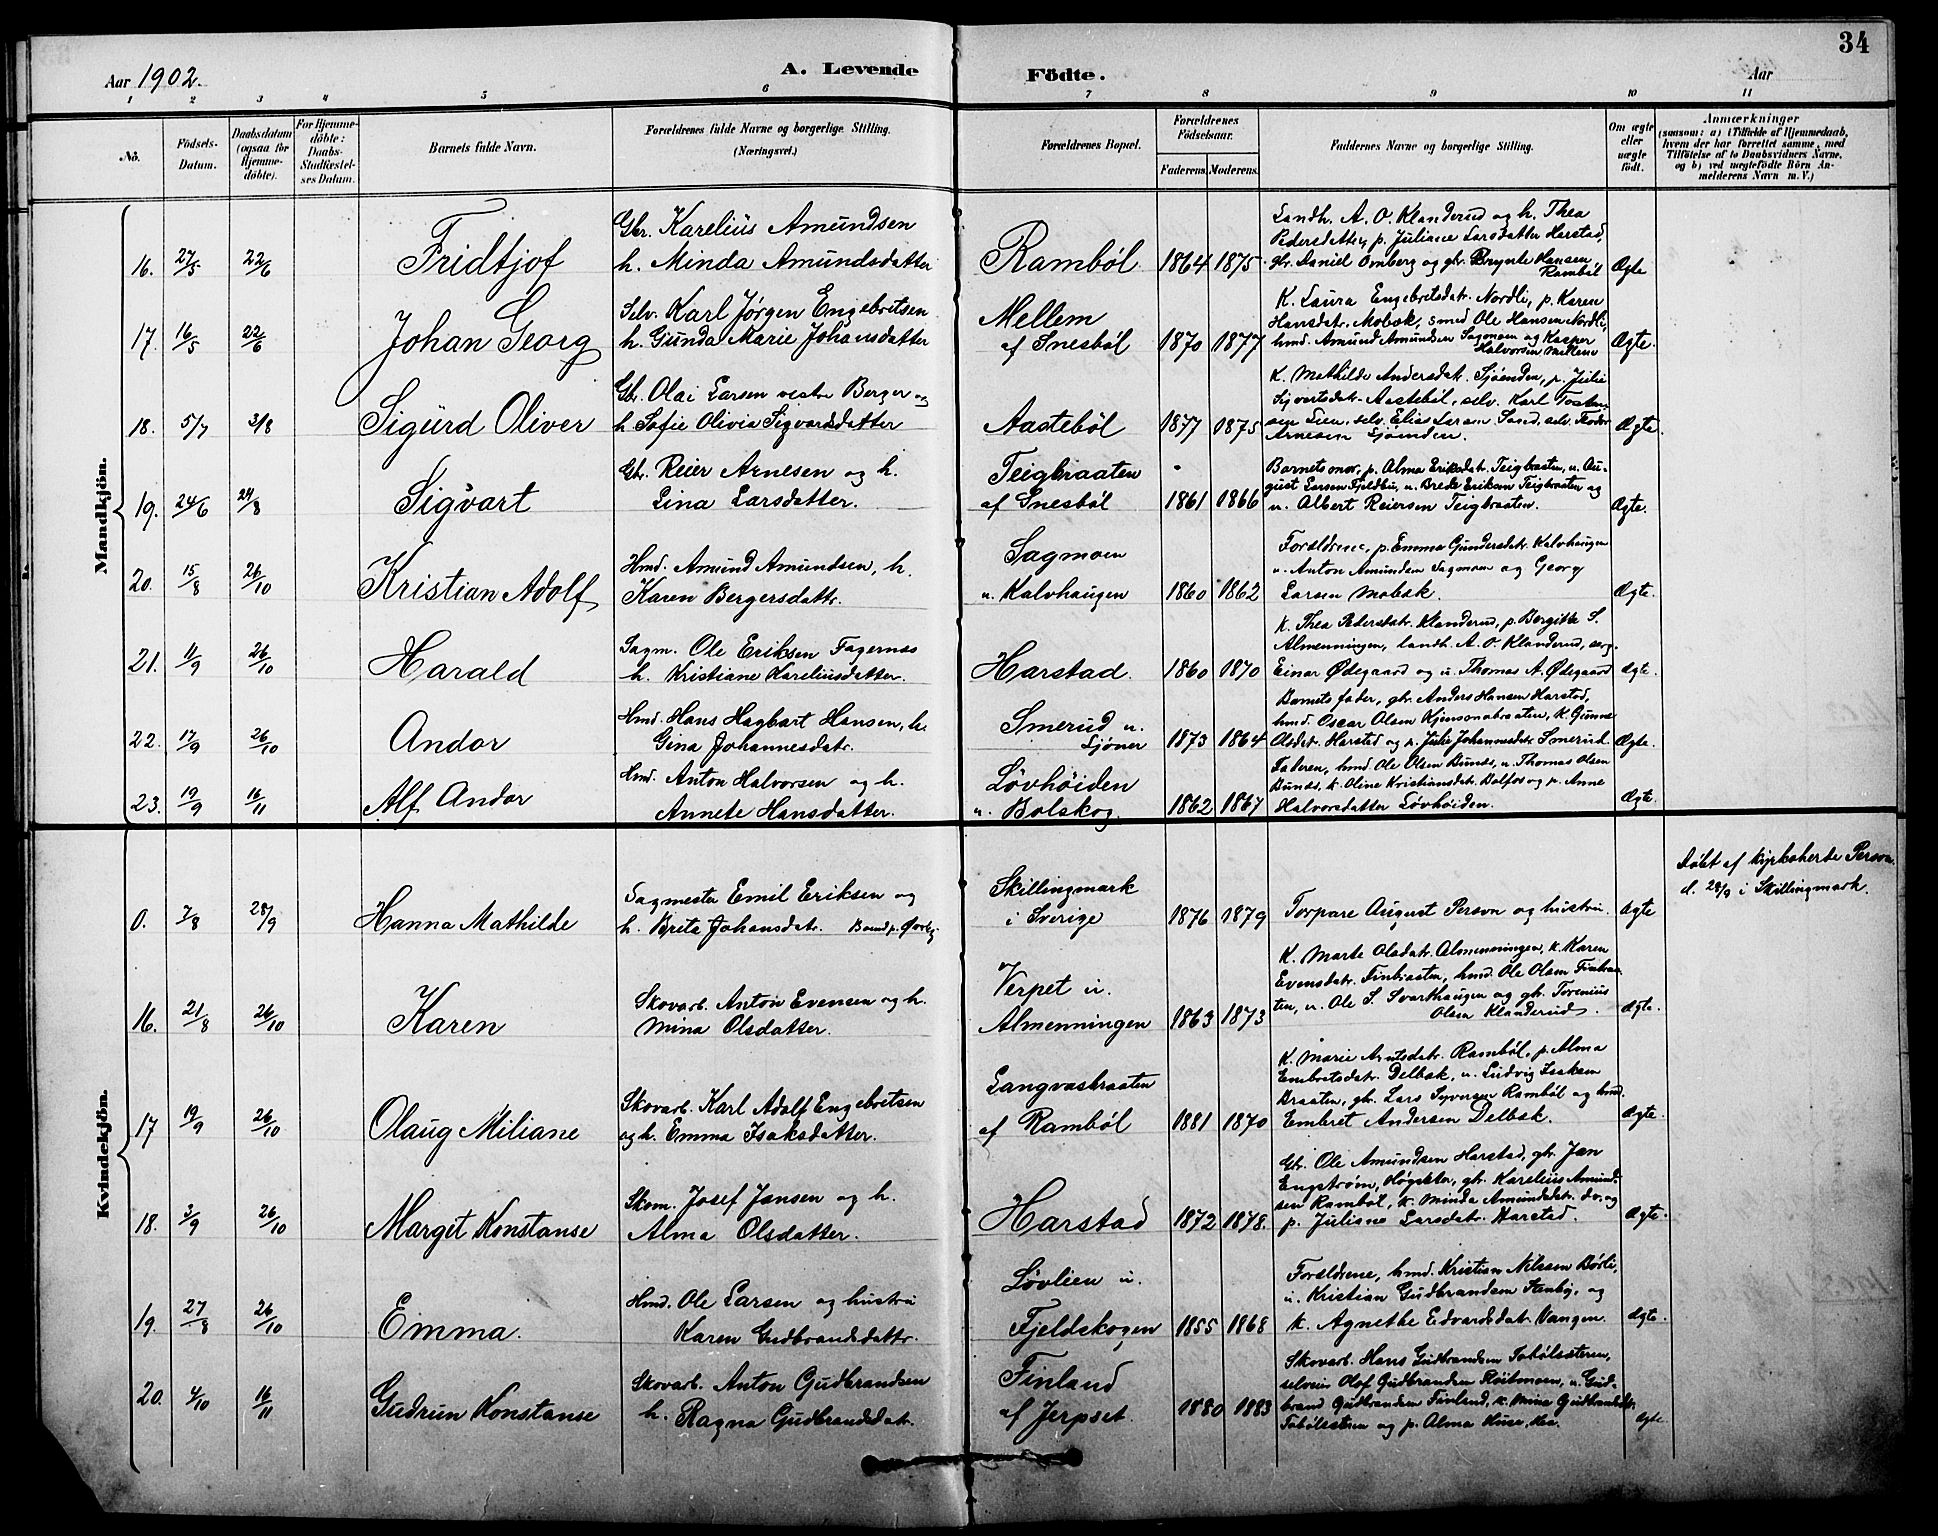 34
Aar 1902.
A. Levende Födte.
Aar
1 2 3 4 5 6 7 8 9 10 11
No.
Födsels-Datum.
Daabsdatum (ogsaa for Hjemmedöbte).
For Hjemmedöbte: Daabs-Stadfæstelses Datum.
Barnets fulde Navn.
Forældrenes fulde Navne og borgerlige Stilling.
(Næringsvei.)
Forældrenes Bopæl.
Forældrenes Födselsaar.
Faderens. Moderens.
Faddernes Navne og borgerlige Stilling.
Om ægte eller uægte födt.
Anmærkninger
(saasom: a) i Tilfælde af Hjemmedaab,
hvem der har forrettet samme, med
Tilföielse af to Daabsvidners Navne,
og b) ved uegtefödte Börn Anmelderens Navn m. V.)
Mandkjön.
16. 27/5 22/6 Fridtjof
Gbr. Karelius Amundsen
h. Minda Amundsdatter
Ramböl 1864 1875
Landh. A. O. Klanderud og h. Thea
Pedersdatter, p. Juliane Larsdatter Harstad,
gbr. Daniel Omberg og gbr. Brynte Hansen
Ramböl
Ægte
17. 16/5 22/6 Johan Georg
Selv. Karl Jørgen Engebretsen
h. Gunda Marie Johansdatter
Mellem
af Snesböl 1870 1877
K. Laura Engebretsdatr. Nordli, p. Karen
Hansdatr. Mobæk, smed Ole Hansen Nordli,
hmd. Amund Amundsen Sagmoen og Kasper
Halvorsen Mellem
Ægte.
18. 5/7 3/8 Sigurd Oliver
Gbr. Olai Larsen vestre Berger og
h. Sofie Olivia Sigvardsdatter
Aasteböl 1877 1875
K. Mathilde Andersdatr. Sjøenden, p. Julie
Syvertsdatr. Aasteböl, selv. Karl Tostensen
Lien, selv. Elias Larsen Sand, selv. Teodor
Arnesen Sjøenden.
Ægte.
19. 24/6 24/8 Sigvart
Gbr. Reier Arnesen og h.
Lina Larsdatter.
Teigbraaten
af Snesböl 1861 1866
Barnets mor, p. Alma Eriksdatr. Teigbraaten, u. August
Larsen Fjeldbu, u. Brede Eriksen Teigbraaten og
u. Albert Reiersen Teigbraaten.
Ægte.
20. 15/8 26/10 Kristian Adolf
Hmd. Amund Amundsen, h.
Karen Bergersdattr.
Sagmoen
u. Kalvhaugen 1860 1862
Forældrene, p. Emma Gundersdatr. Kalvhaugen
u. Anton Amundsen Sagmoen og Georg
Larsen Mobæk.
Ægte.
21. 11/9 26/10 Harald
Sagm. Ole Eriksen Fagernæs
h. Kristiane Kareliusdatter.
Harstad. 1860 1870
K. Thea Pedersdatr. Klanderud, p. Bergitte S.
Almenningen, landh. A. O. Klanderud,
Einar Ødegaard og u. Thomas A. Ødegaard
Ægte.
22. 17/9 26/10 Andor
Hmd. Hans Hagbart Hansen, h.
Gina Johannesdatr.
Smerud u.
Sjöner 1873 1864
Barnets fader, gbr. Anders Hansen Harstad,
hmd. Oscar Olsen, K. Gunne
Olsdatr. Harstad og p. Julie Johannesdatr. Smerud.
Ægte.
23. 19/9 16/11 Alf Andor
Hmd. Anton Halvorsen og h.
Annete Hansdatter.
Løvhøiden
u. Bolskog. 1862 1867
Faderen, hmd. Ole Olsen Bunes, u. Thomas Olsen
Bunes, K. Oline Kristiansdatr. Bolfos og p. Anne
Halvorsdatter Løvhøiden.
Ægte.
Kvindekjön.
0. 7/8 28/9 Hanna Mathilde
Sagmester Emil Eriksen og
h. Brita Johansdatr.
Skillingmark
i Sverige 1876 1879
Torpare August Person og hustru.
Ægte
Döbt af kyrkoherde Person
d. 28/9 i Skillingmark.
16. 21/8 26/10 Karen
Skovarb. Anton Evensen og h.
Mina Olsdatter.
Verpet u.
Almenningen 1863 1873
K. Marte Olsdatr. Almenningen, K. Karen
Evensdatr. Finbraaten, hmd. Ole Olsen Finbraaten,
u. Ole S. Svarthaugen og gbr. Torenius
Olsen Klanderud.
Ægte.
17 19/9 26/10 Olaug Miliane
Skovarb. Karl Adolf Engebretsen
og h. Emma Isaksdatter.
Langvasbraaten
af Ramböl 1881 1870
K. Marie Arntsdatr. Ramböl, p. Alma
Embretsdatr. Delbæk, u. Ludvig Isaksen
Braaten, gbr. Lars Syversen Ramböl og hmd.
Embret Andersen Delbæk.
Ægte.
18. 3/9 26/10 Marget Konstanse
Skom. Josef Jansen og h.
Alma Olsdatter.
Harstad 1872 1878.
Gbr. Ole Amundsen Harstad, gbr. Jan
Engström, Høgsæter, gbr. Karelius Amundsen
Ramböl, K. Minda Amundsdatr. do. og
p. Juliane Larsdatr. Harstad.
Ægte.
19. 27/8 26/10 Emma.
Hmd. Ole Larsen og hustru
Karen Gudbrandsdattr.
Løvlien u.
Fjeldskogen 1855 1868
Forældrene, hmd. Kristian Nilssen Börli,
u. Kristian Gudbrandsen Stenby, og
K. Agnethe Edvardsdatr. Vangen.
Ægte.
20. 4/10 16/11 Gudrun Konstanse
Skovarb. Anton Gudbrandsen
h. Ragna Gudbrandsdatr.
Finland
af Jerpset. 1880 1883
Skovarb. Hans Gudbrandsen Tobölsæteren,
selveier Olof Gudbrandsen, u. Gudbrand
Gudbrandsen Finland, K. Mina Gudbrandsdtr.
Tobölsæteren og p. Alma Huse, Moe.
Ægte.